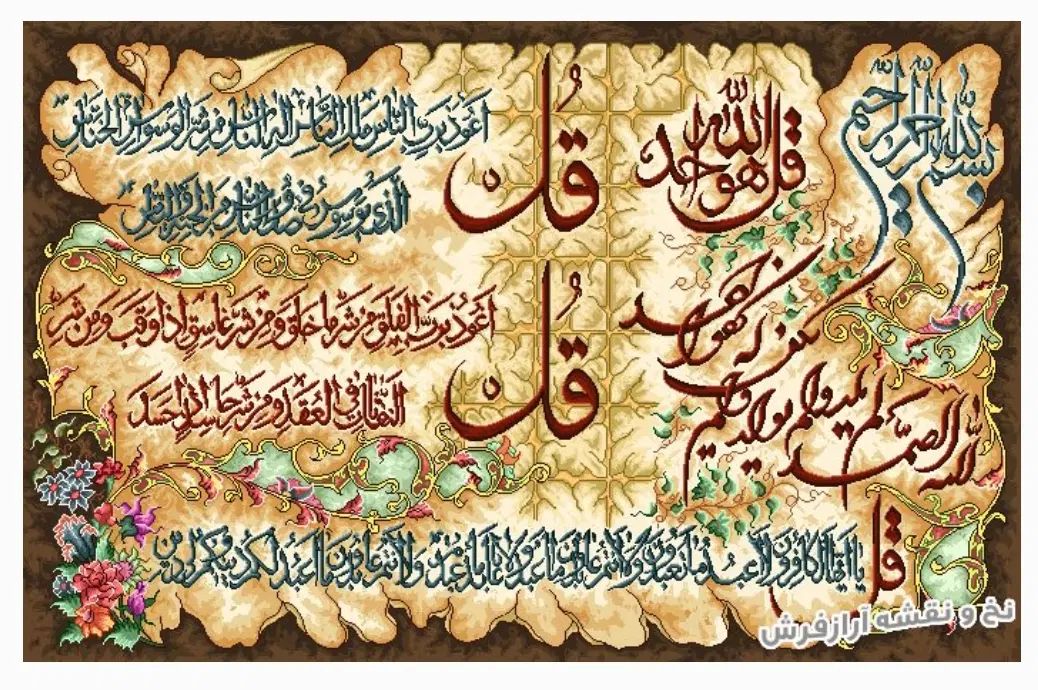 بسم الله الرحمن الرحیم
قل هو الله احد
الله الصمد لم یلد ولم یولد ولم یکن له کفوا احد
قل
اعوذ برب الناس ملک الناس اله الناس من شر الوسواس الخناس
الذی یوسوس فی صدور الناس من الجنه والناس
قل
اعوذ برب الفلق من شر ما خلق و من شر غاسق اذا وقب و من شر
النفاثات فی العقد و من شر حاسد اذا حسد
قل
یا ایها الکافرون لا اعبد ما تعبدون ولا انتم عابدون ما اعبد ولا انا عابد ما عبدتم ولا انتم عابدون ما اعبد لکم دینکم ولی دین
نخ و نقشه آرازفرش